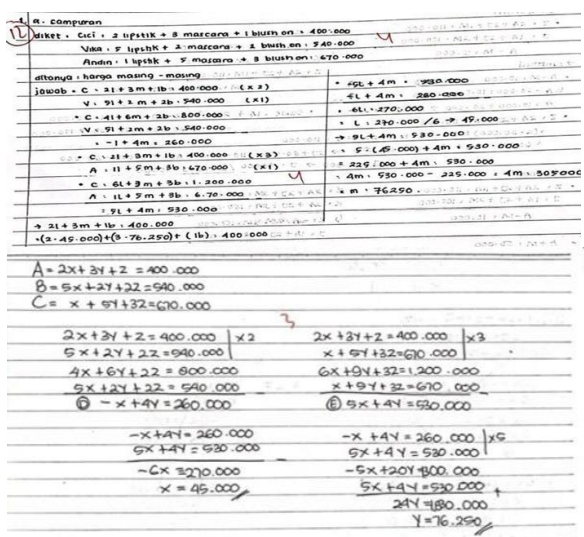 a. campuran
12
diket : Cici : 2 lipstik + 3 mascara + 1 blush on : 400.000
Vika : 5 lipstik + 2 mascara + 2 blush on : 540.000
Andin : 1 lipstik + 5 mascara + 3 blush on : 670.000
ditanya : harga masing - masing
jawab • C : 2l + 3m + 1b : 400.000 (x2)
V : 5l + 2m + 2b : 540.000 (x1)
• C : 4l + 6m + 2b : 800.000
V : 5l + 2m + 2b : 540.000
= -l + 4m : 260.000
• C : 2l + 3m + 1b : 400.000 (x3)
A : 1l + 5m + 3b : 670.000 (x1)
• C : 6l + 9m + 3b : 1.200.000
A : 1L + 5m + 3b : 6.70.000
= 5L + 4m : 530.000
→ 2l + 3m + 1b : 400.000
=(2.45.000)+(3.76.250)+(1b) : 400.000
• 5L + 4m : 530.000
-L + 4m : 260.000
• 6L : 270.000
• L : 270.000 /6 → 45.000
→ 5L + 4m : 530.000
: 5.(45.000) + 4m : 530.000
= 225.000 + 4m : 530.000
: 4m : 530.000 - 225.000 : 4m : 305000
• m : 76250
A = 2x + 3y + z = 400.000
B = 5x + 2y + 2z = 540.000
C = x + 5y + 3z = 670.000
3
2x + 3y + z = 400.000 | x2
5x + 2y + 2z = 540.000
4x + 6y + 2z = 800.000
5x + 2y + 2z = 540.000
D -x + 4y = 260.000
2x + 3y + z = 400.000 | x3
x + 5y + 3z = 670.000
6x + 9y + 3z = 1.200.000
x + 9y + 3z = 670.000
E 5x + 4y = 530.000
-x + 4y = 260.000
5x + 4y = 530.000
-6x = 270.000
x = 45.000
-x + 4y = 260.000 | x5
5x + 4y = 530.000
-5x + 20y = 1300.000
5x + 4y = 530.000 +
24y = 1830.000
y = 76.250